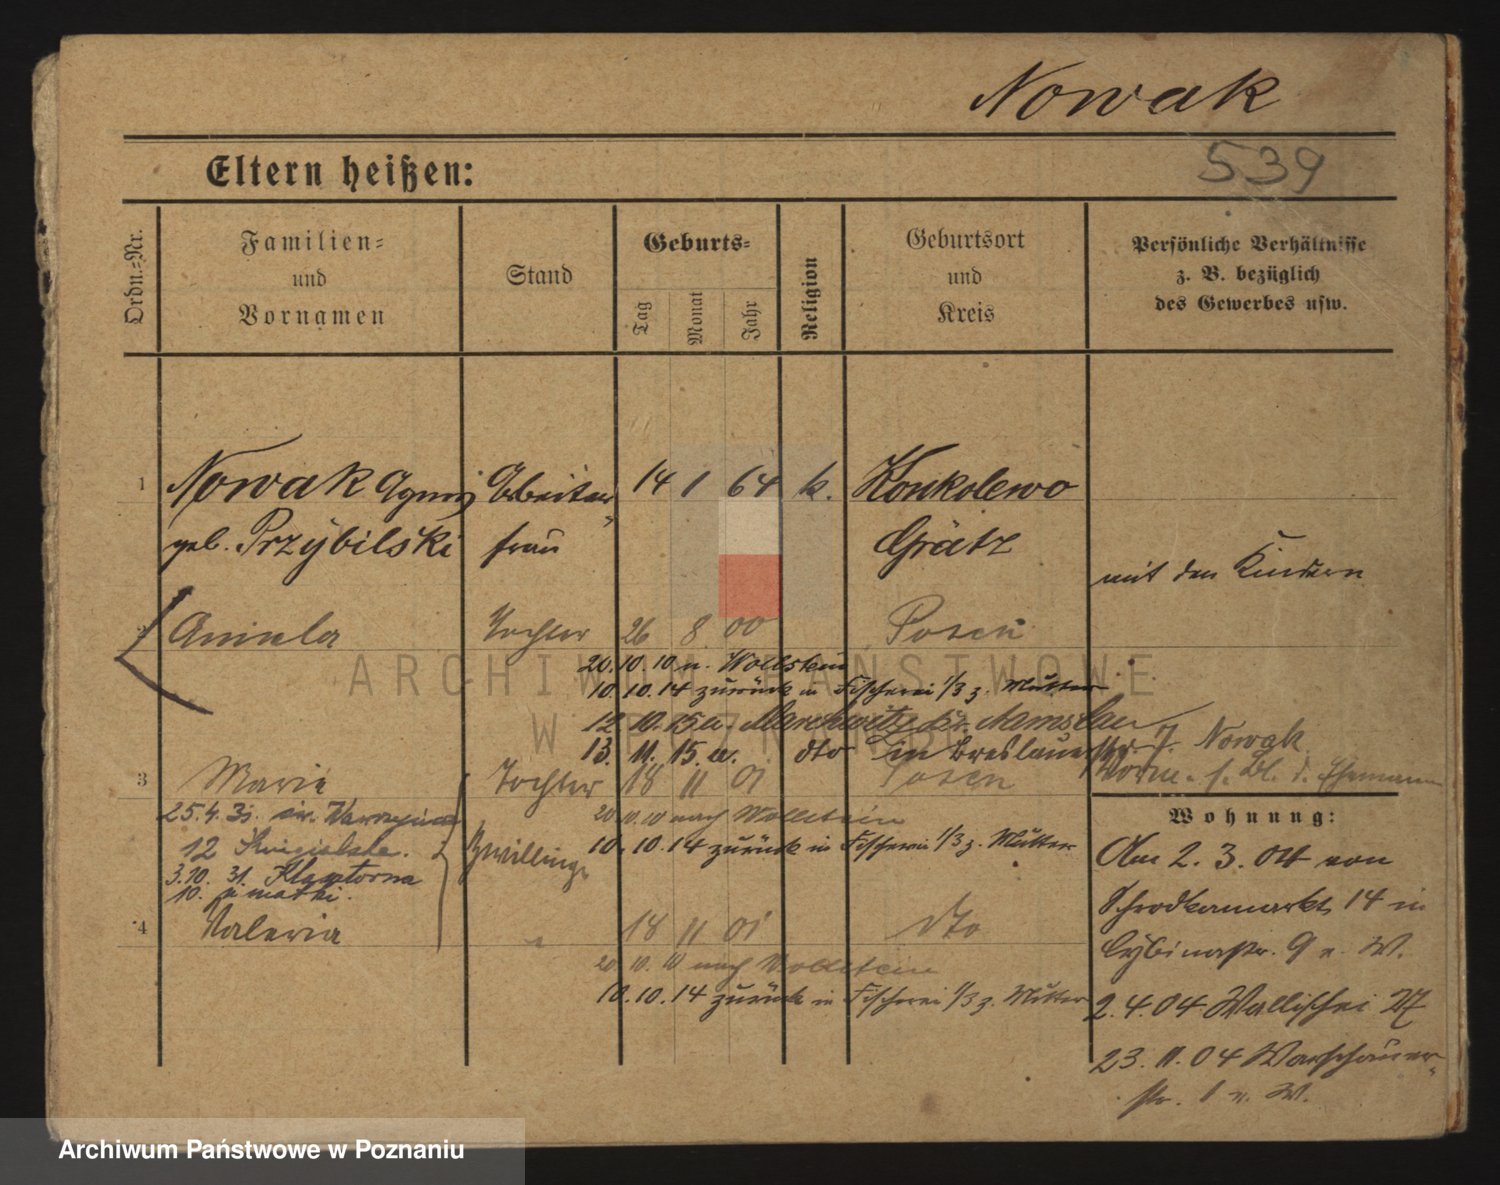 Nowak
539
Eltern heißen:
Ordn.=Nr.
Familien=
und
Vornamen
Stand
Geburts=
Tag
Monat
Jahr
Religion
Geburtsort
und
Kreis
Persönliche Verhältnisse
z. B. bezüglich
des Gewerbes usw.
1 Nowak Agnes Arbeiter 14 1 64 k. Konkolewo
geb. Przybilski frau Grätz
mit den Kindern
2 Aniela Tochter 26 8 00 Posen
20.10.10 n. Wollstein
10.10.14 zurück in Fischerei 1/3 z. Mutter
12. 10. 15 n. Kr. Namslau
13. 11. 15. n. dto in Breslauerstr. 7. Nowak
3 Maria Tochter 18 11 01 Posen
s. Bl. d. Ehemann
25.4.31. św. Wawrzyńca
20 10.10 nach Wollstein
12
Zwillinge
10.10.14 zurück in Fischerei 1/3 z. Mutter
3.10. 31.
10. matki.
4 Valeria " 18 11 01 dto
20.10.10 nach Wollstein
10.10.14 zurück in Fischerei 1/3 z. Mutter
Wohnung:
Am 2. 3. 04 von
Schrodkamarkt 14 in
Cybinastr. 9 n. W.
2. 4. 04 Wallischei 27
23. 11. 04 Warschauer-
str. 1 n. W.
ARCHIWUM PAŃSTWOWE
W POZNANIU
Archiwum Państwowe w Poznaniu